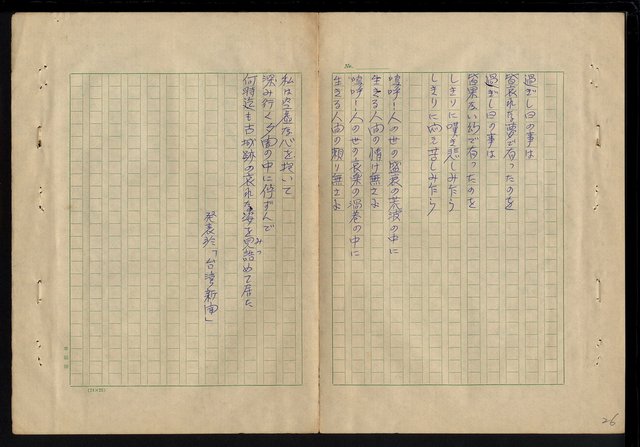 No.
過ぎし日の事は
皆哀れな夢で有ったのを
過ぎし日の事は
皆果ない幻で有ったのを
しきりに嘆き悲しみたう
しきりに向て苦しみたう
嗚呼!人の世の盛衰の荒波の中に
生きる人間の情け無さよ
嗚呼!人の世の哀楽の渦巻の中に
生きる人間の頼り無さよ
私は空虚な心を抱いて
深み行く夕闇の中に佇ずんで
何時迄も古城跡の哀れな姿を見詰めて居た
みつ
発表於「台湾新聞」
(24×20)
26